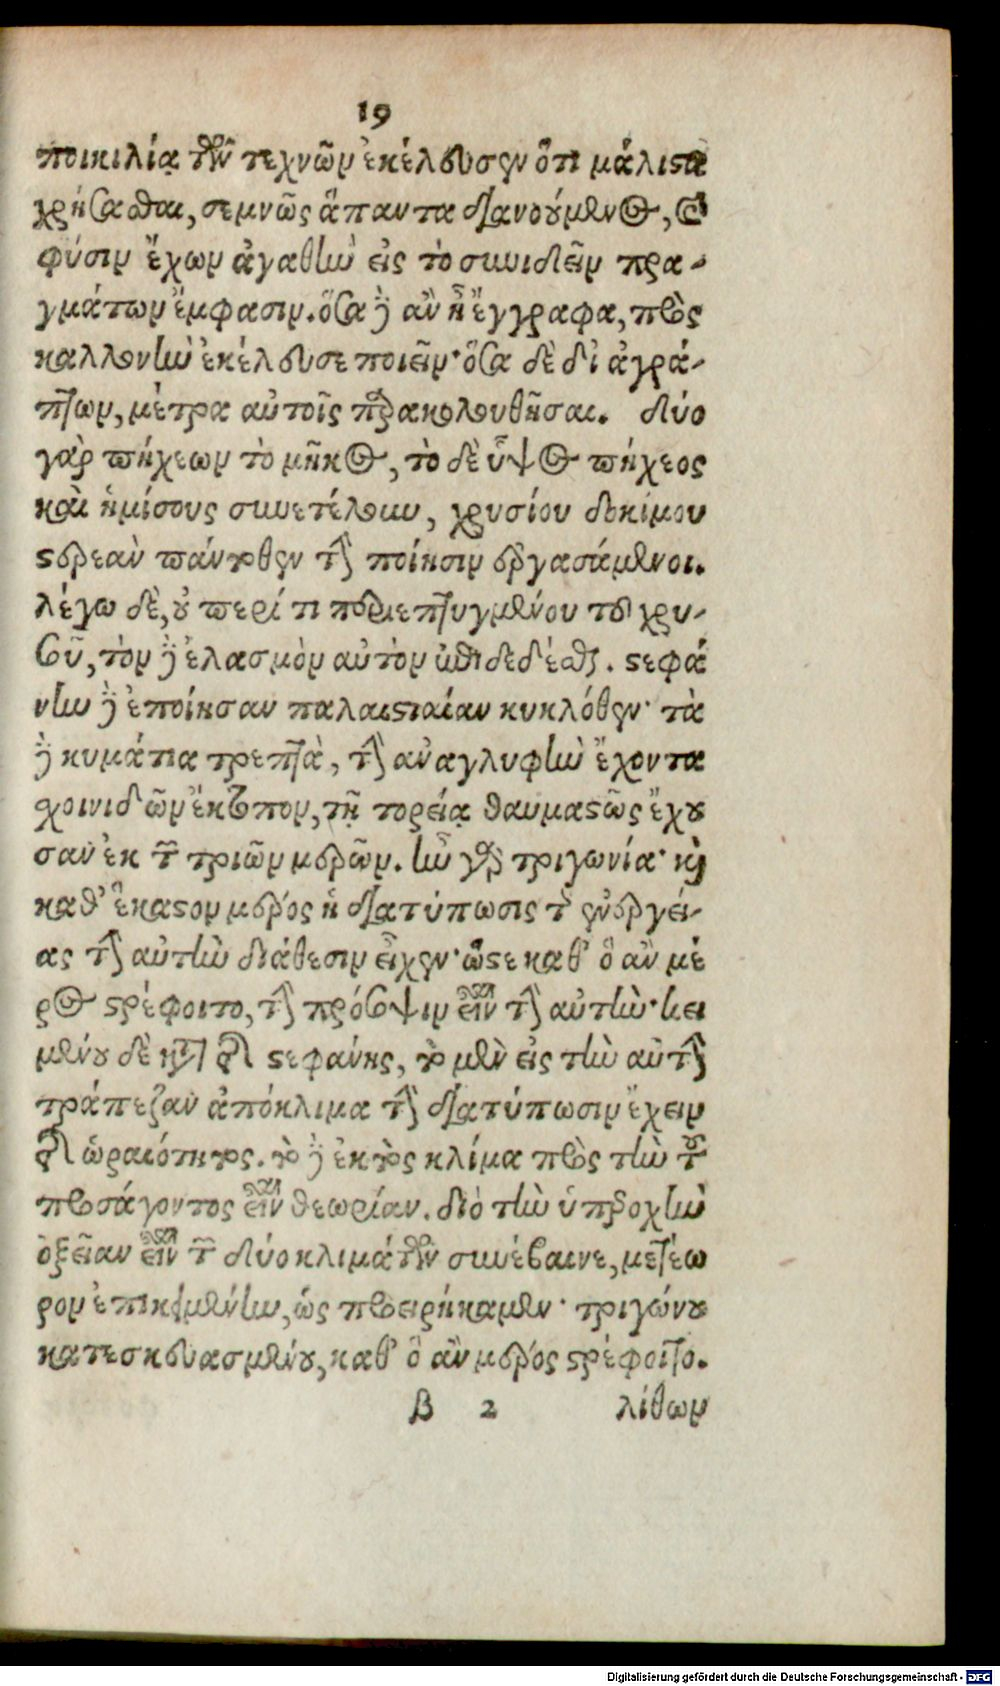 19
ποικιλίᾳ τῶν τεχνῶν ἐκέλευσεν ὅτι μάλιστα
χρήσασθαι, σεμνῶς ἅπαντα διανούμενος, καὶ
φύσιν ἔχων ἀγαθὴν εἰς τὸ συνιδεῖν πρα-
γμάτων ἔμφασιν. ὅσα δ̀ ἂν ᾖ ἔγγραφα, πρὸς
καλλονὴν ἐκέλευσε ποιεῖν· ὅσα δὲ δι ἀγρά-
πτων, μέτρα αὐτοῖς παρακολουθῆσαι. δύο
γὰρ πήχεων τὸ μῆκος, τὸ δὲ ὕψος πήχεος
καὶ ἡμίσους συνετέλουν, χρυσίου δοκίμου
στερεὰν πάντοθεν τὴν ποίησιν ἐργασάμενοι.
λέγω δὲ, οὐ περί τι περιεπτυγμένου τοῦ χρυ-
σοῦ, τὸν δ̀ ἐλασμὸν αὐτὸν ἐπιδεδέσθαι. στεφά
νην δ̀ ἐποίησαν παλαιστιαίαν κυκλόθεν· τὰ
δ̀ κυμάτια τρεπτὰ, τὴν ἀναγλυφὴν ἔχοντα
σχοινιδῶν ἔκτυπον, τῇ τορείᾳ θαυμαστῶς ἔχου
σαν ἐκ τῶν τριῶν μερῶν. ἦν γὰρ τριγωνία· καὶ
καθ' ἕκαστον μέρος ἡ διατύπωσις τῆς ἐνεργεί-
ας τὴν αὐτὴν διάθεσιν εἶχεν· ὥστε καθ' ὃ ἂν μέ
ρος στρέφοιτο, τὴν πρόσοψιν εἶναι τὴν αὐτὴν· κει
μένου δὲ κατὰ τῆς στεφάνης, τὸ μὲν εἰς τὴν αὐτὴν
τράπεζαν ἀπόκλιμα τὴν διατύπωσιν ἔχειν
τῆς ὡραιότητος. τὸ δ̀ ἐκτὸς κλίμα πρὸς τὴν τοῦ
προσάγοντος εἶναι θεωρίαν. διὸ τὴν ὑπεροχὴν
ὀξεῖαν εἶναι τῶν δύο κλιμάτων συνέβαινε, μετέω
ρον ἐπικειμένην, ὡς προειρήκαμεν· τριγώνου
κατεσκευασμένου, καθ' ὃ ἂν μέρος στρέφοιτο.
β 2 λίθων
Digitalisierung gefördert durch die Deutsche Forschungsgemeinschaft - DFG